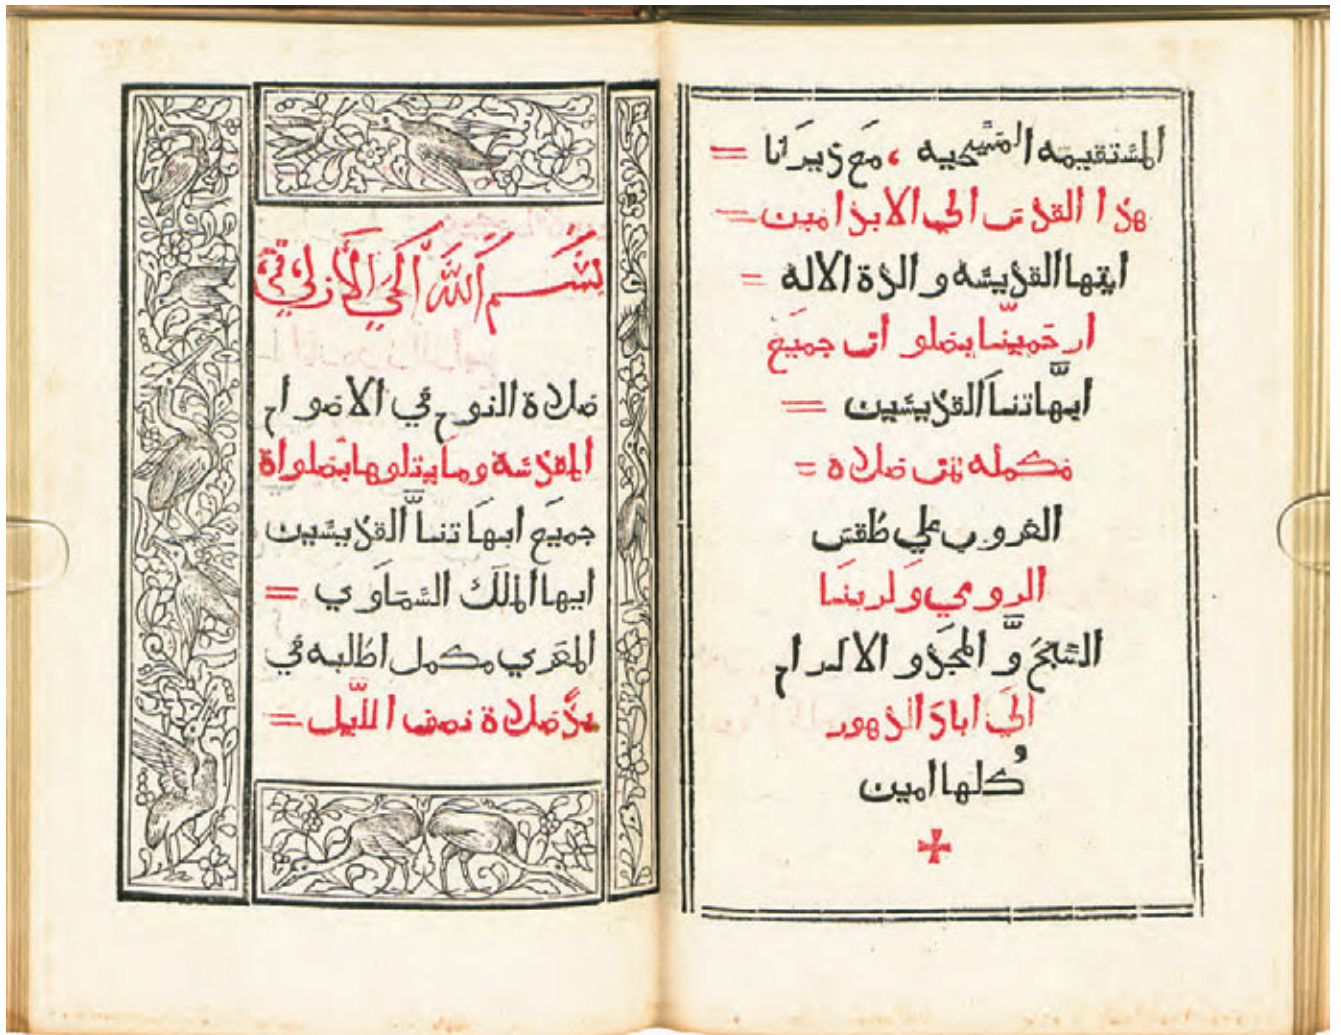 المستقيمه المسيحيه ، مع ديرانا =
هذا القدس الي الابد امين =
ايتها القديسه و الدة الاله =
ارحمينا بصلوات جميع
ابهاتنا القديسين =
مكمله تمت صلاة =
الغروب علي طقس
الرومي ولربنا
السبح و المجد و الاكرام
الي اباد الدهور
كلها امين
بسم الله الحي الازلي
صلاة النوم في الاصوام
المقدسه وما يتلوها بصلواة
جميع ابهاتنا القديسين
ايها الملك السماوي =
المعزي مكمل اطلبه في
بد صلاة نصف الليل =